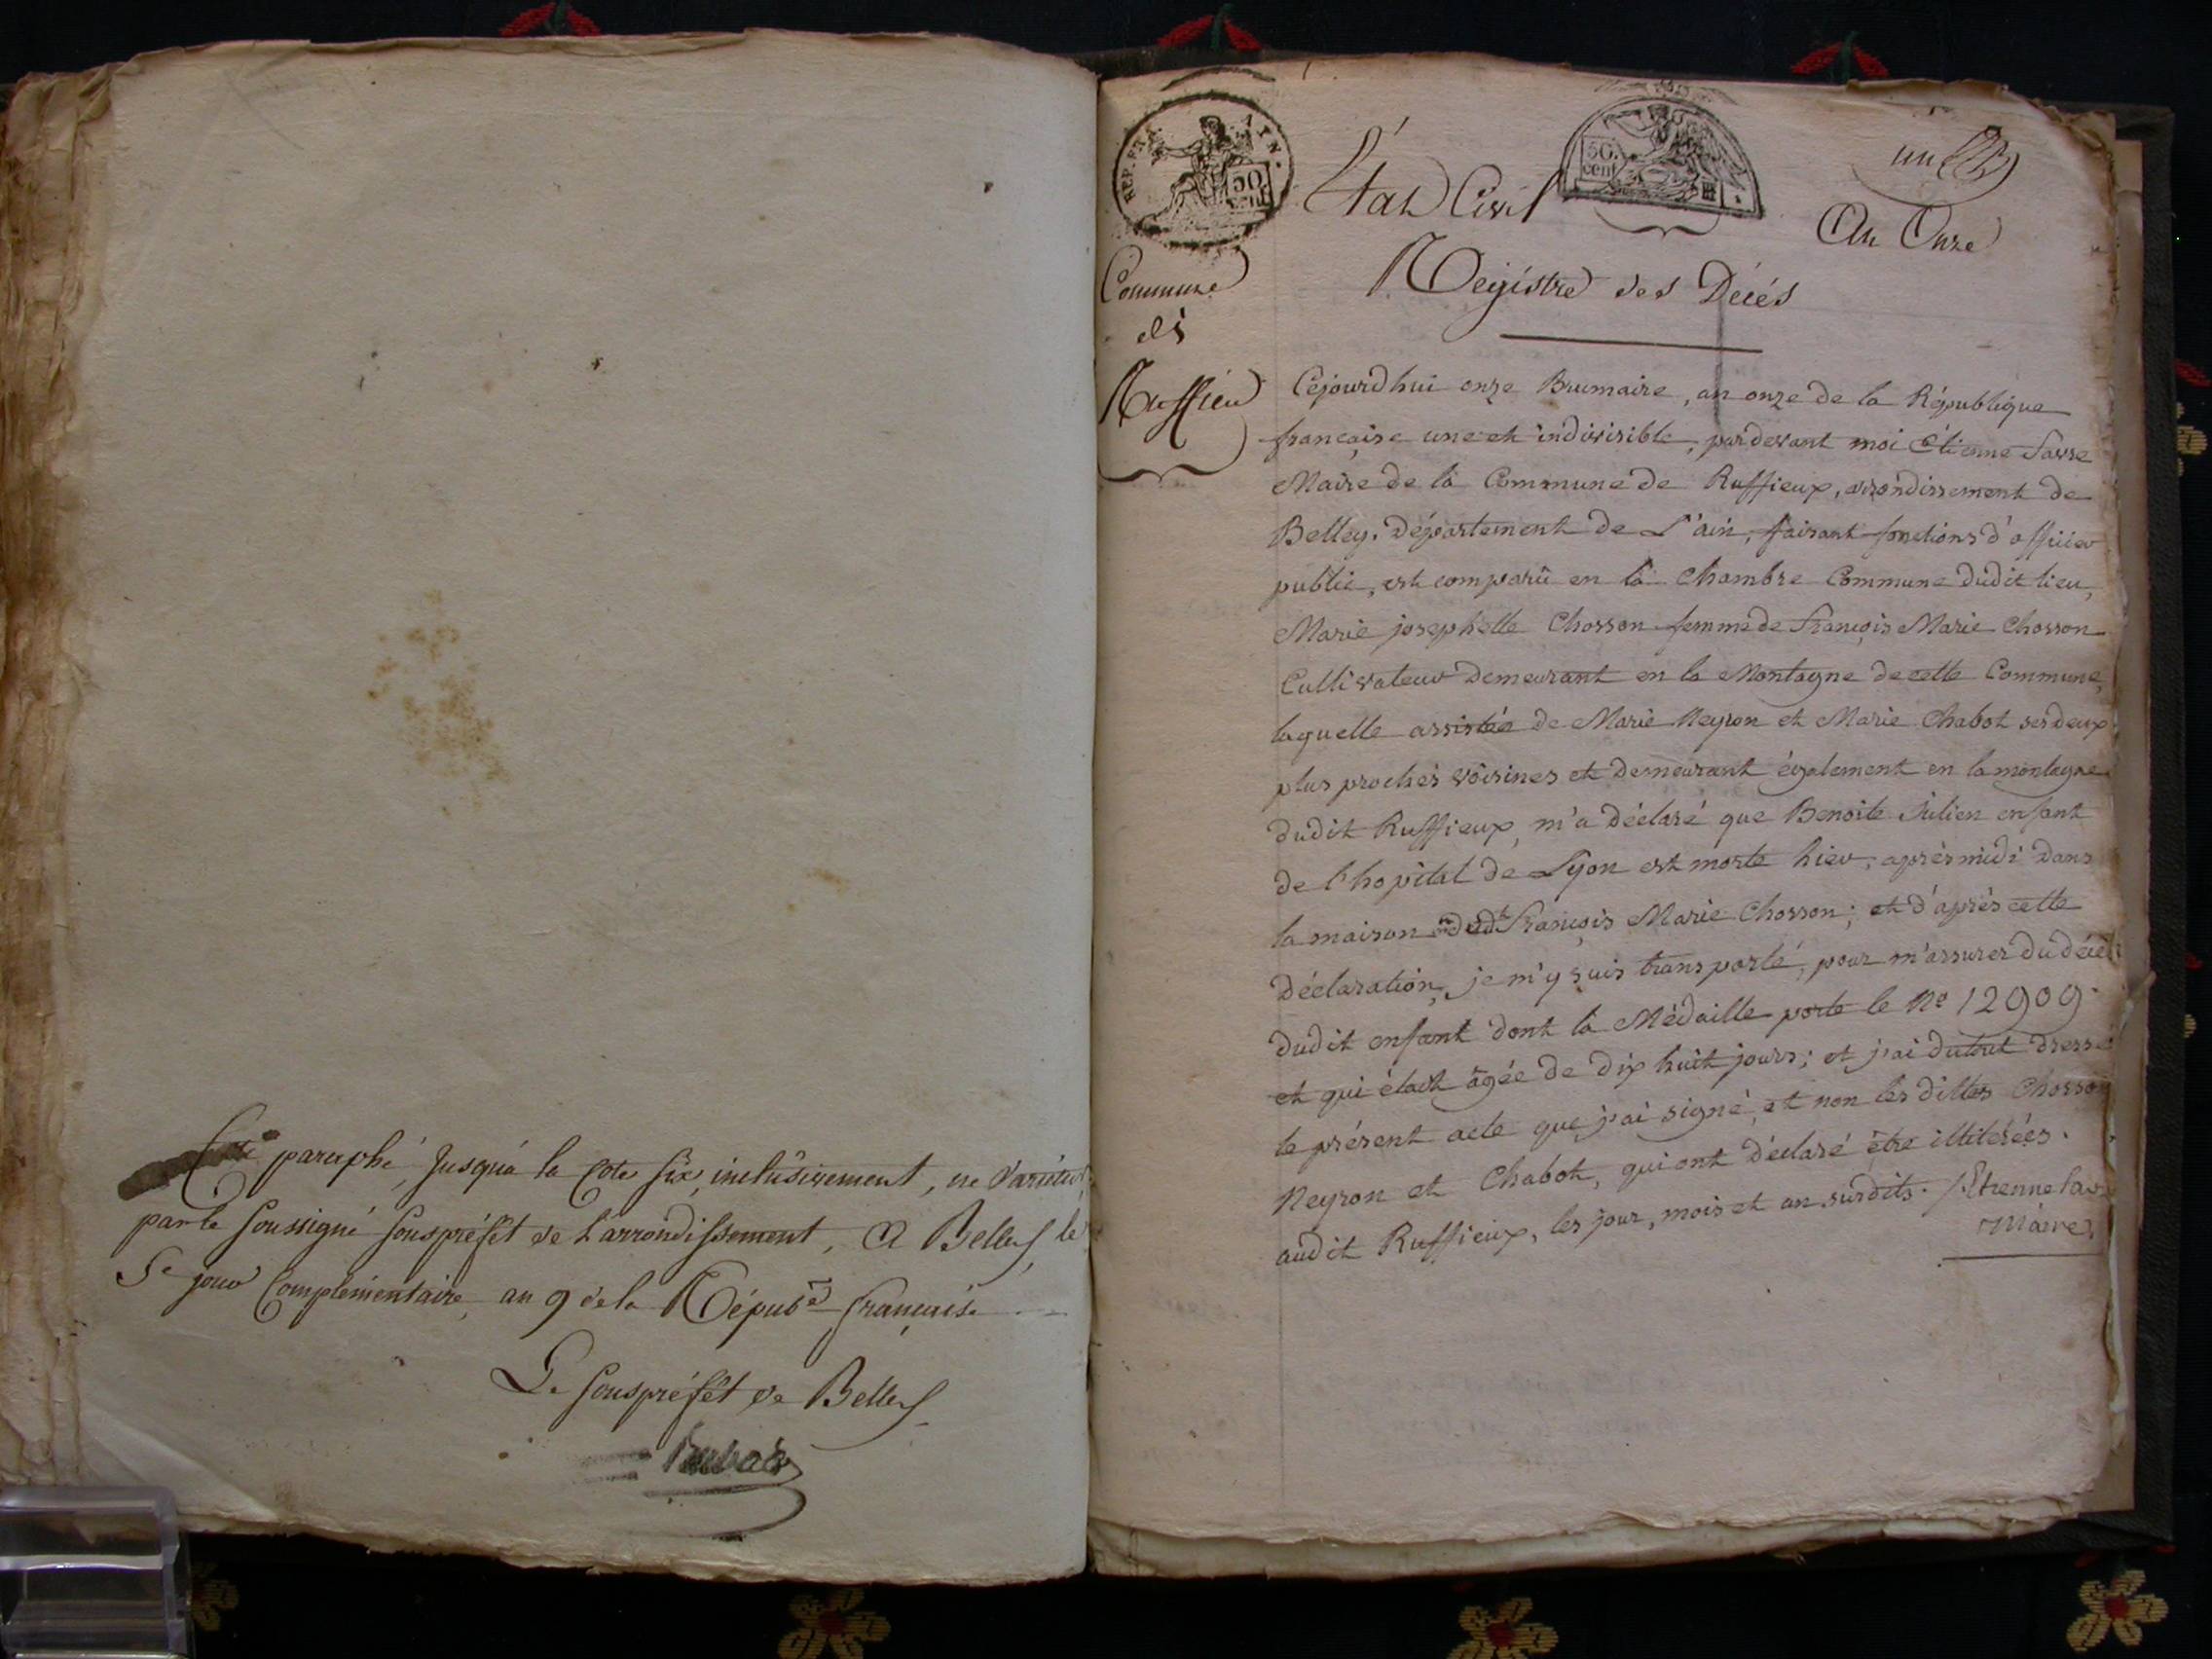 paraphé, jusqu'à la Cote Six, inclusivement, ne Varietur,
par le Soussigné Souspréfêt de l'arrondissement, A Belley, le
5e jour Complémentaire, an 9 de la Répub.e française
Le Souspréfêt de Belley
REP. FRA. AIN.
50
Etat Civil
50.
cent
un
An Onze
Registre des Décés
Commune
de
Ruffieu
Cejourd'hui onze Brumaire, an onze de la République
française une et indivisible, pardevant moi Etienne Favre
Maire de la Commune de Ruffieux, arrondissement de
Belley, Département de L'ain, faisant fonctions d'officier
public, est comparû en la Chambre Commune dudit lieu,
Marie josephette Chosson femme de François Marie Chosson
Cultivateur Demeurant en la Montagne de cette Commune,
laquelle assistée de Marie Neyron et Marie Chabot ses deux
plus proches voisines et Demeurant également en la montagne
dudit Ruffieux, m'a Déclaré que Benoite Julien enfant
de l'hopital de Lyon est morte hier, après midi dans
la maison dudt François Marie Chosson; et d'après cette
Déclaration, je m'y suis transporté, pour m'assurer du décès
dudit enfant dont la Médaille porte le No 12909.
et qui étoit âgée de Dix huit jours; et j'ai du tout Dressé
le présent acte que j'ai signé, et non les dittes Chosson
Neyron et Chabot, qui ont Déclaré être illiterées.
audit Ruffieux, les jour, mois et an susdits. Etienne Favre
Maire